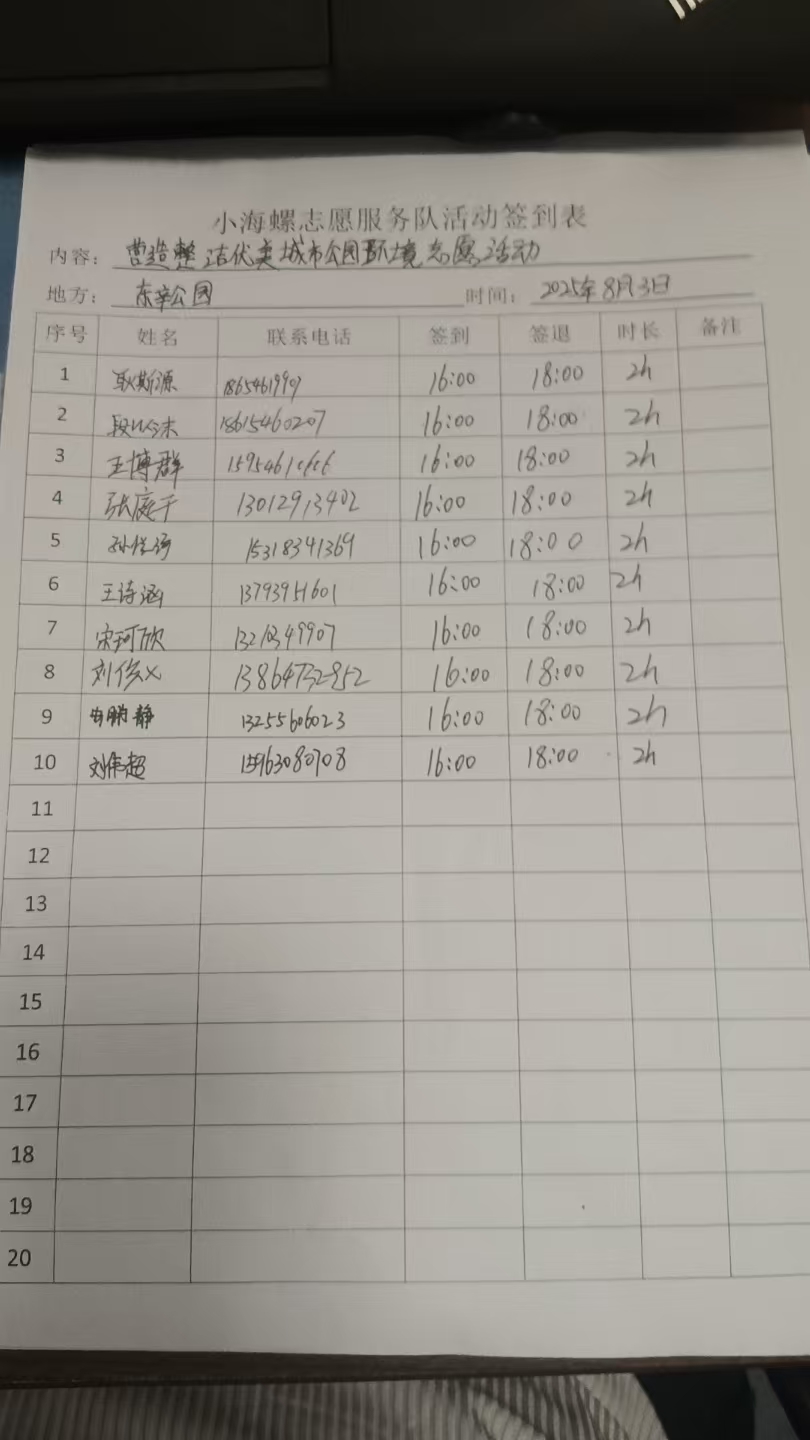 小海螺志愿服务队活动签到表
内容: 营造整洁优美城市公园环境志愿活动
地方: 东辛公园 时间: 2025年8月3日
序号 姓名 联系电话 签到 签退 时长 备注
1 耿斯源 16:00 18:00 2h
2 18615460207 16:00 18:00 2h
3 王博群 16:00 18:00 2h
4 张庭于 13012913402 16:00 18:00 2h
5 15318341369 16:00 18:00 2h
6 王诗涵 13793951601 16:00 18:00 2h
7 宋珂欣 16:00 18:00 2h
8 刘俊义 13864732952 16:00 18:00 2h
9 13255606023 16:00 18:00 2h
10 刘伟超 15963080708 16:00 18:00 2h
11
12
13
14
15
16
17
18
19
20